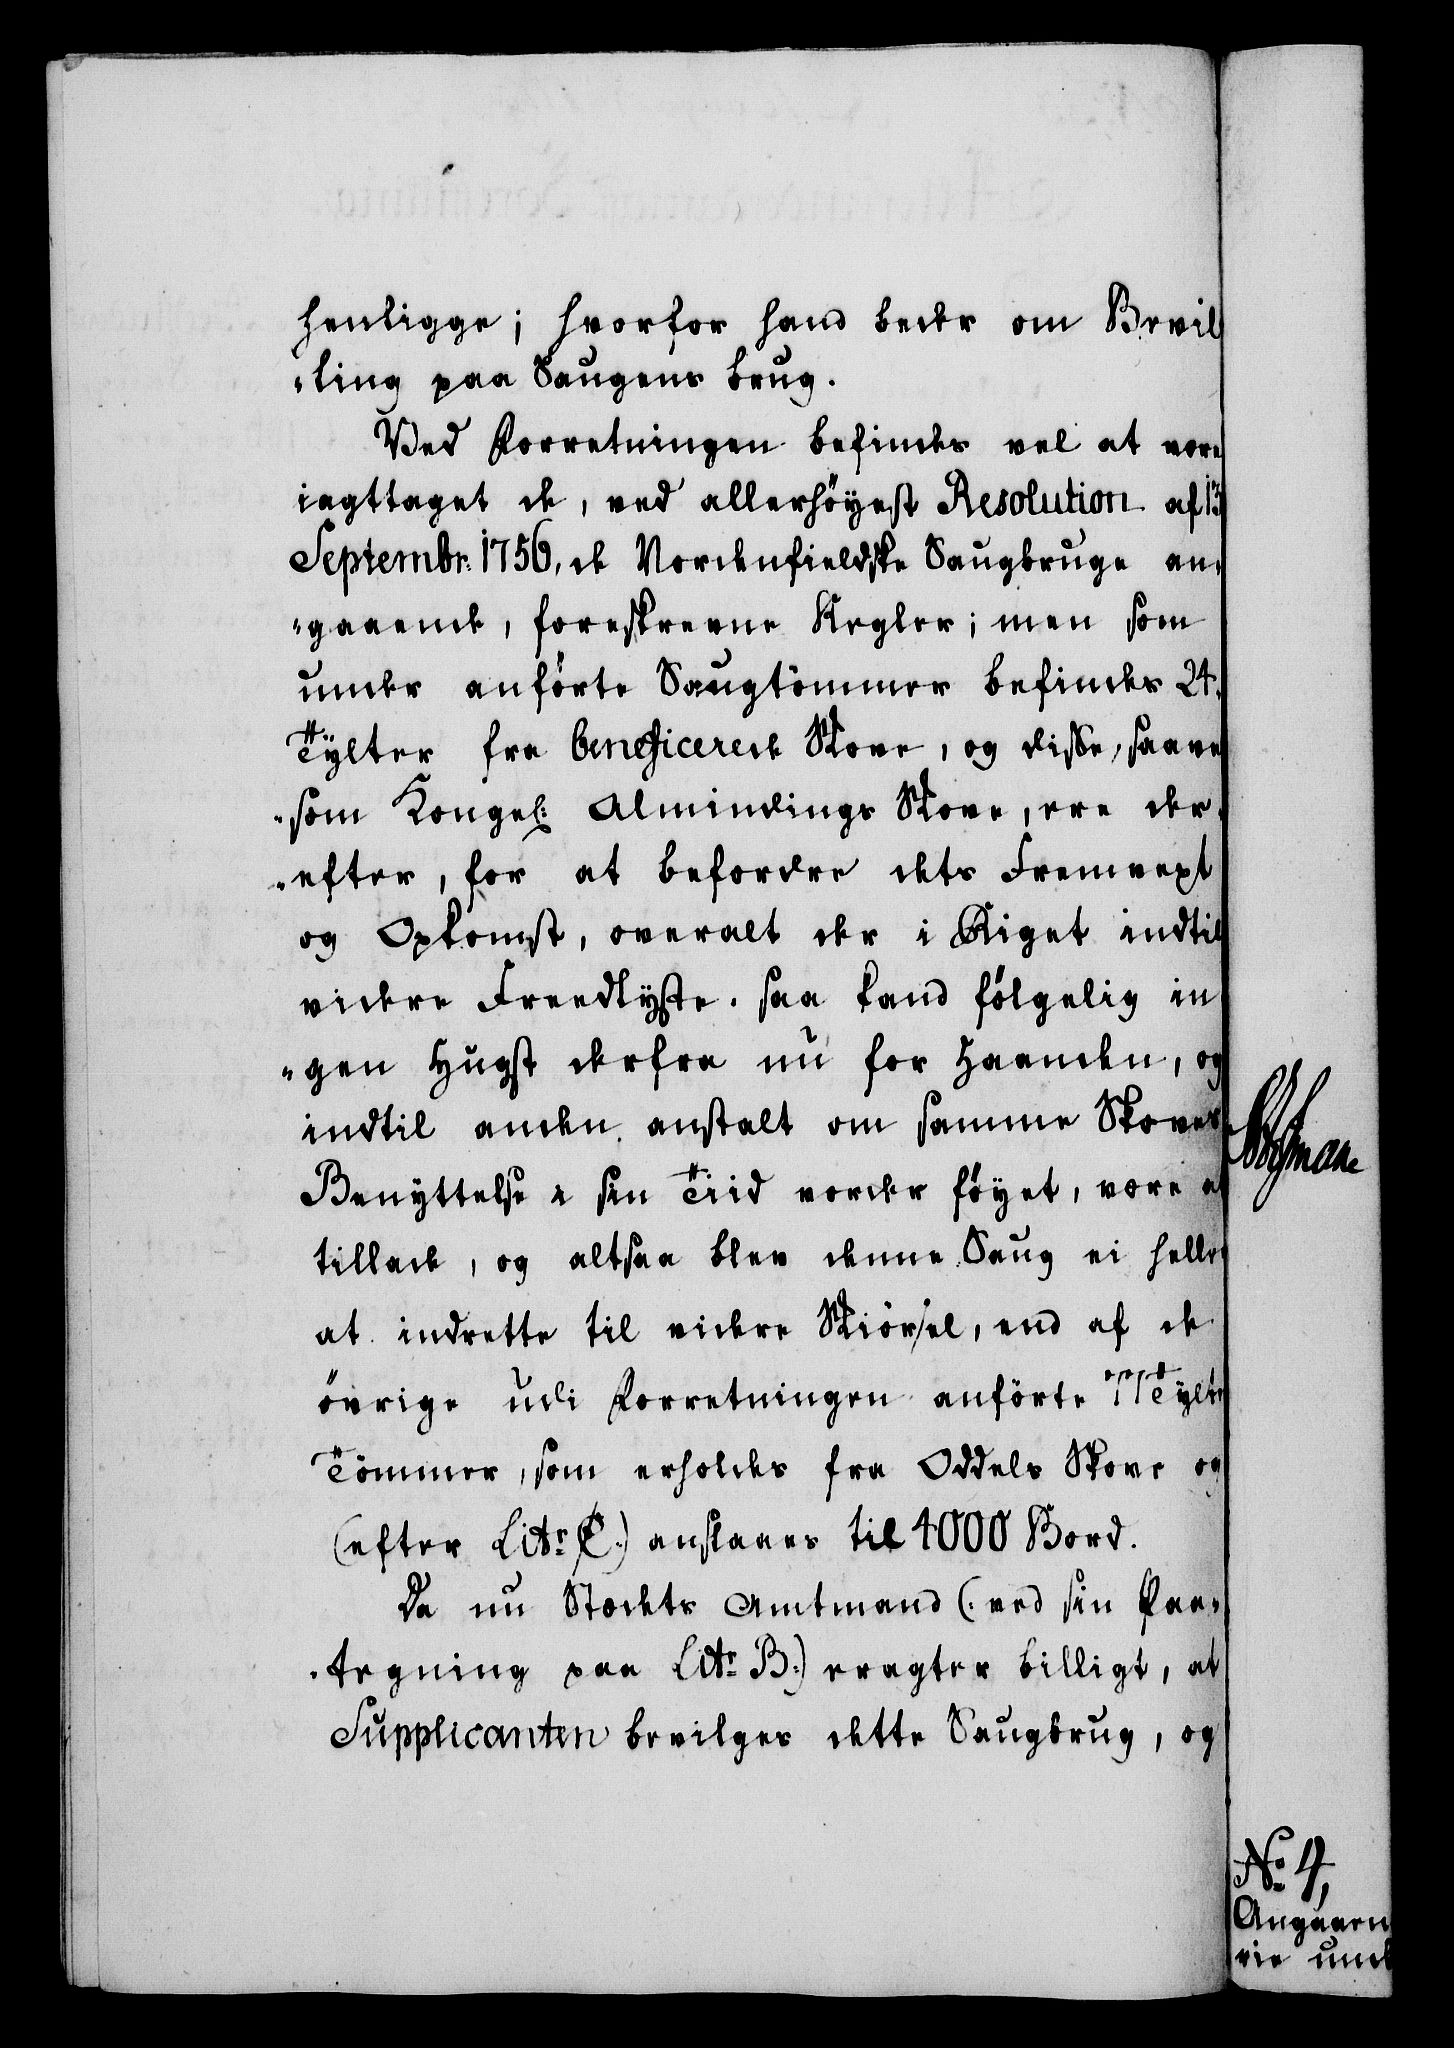 henligge; hvorfor hand beder om Bevil
-ling paa Saugens brug.
Ved Forretningen befindes vel at være
iagttaget de, ved allerhöyest Resolution af 13
Septembr: 1756, de Nordenfieldske Saugbruge an-
-gaaende, foreskrevne Regler; men som
under anförte Saugtömmer befindes 24.
Tylter fra beneficerede Skove, og disse, saavel
-som Kongel: Almindings Skove, ere der-
-efter, for at befordre dets Fremvext
og Opkomst, overalt der i Riget indtil
videre Freedlyste. saa kand fölgelig in
-gen Hugst derfra nu for Haanden, og
indtil anden anstalt om samme Skoves
Benyttelse i sin Tiid vorder föyet, være at
tillade, og altsaa blev denne Saug ei heller
at indrette til videre Skiörsel, end af de
övrige udi Forretningen anförte 77 Tylter
Tömmer, som erholdes fra Oddels Skove og
(efter Litr: C:) anslaaes til 4000 Bord.
Da nu Stædets Amtmand (: ved sin Paa-
-tegning paa Litr: B:) eragter billigt, at
Supplicanten bevilges dette Saugbrug, og
No 4,
Angaaen
vie und